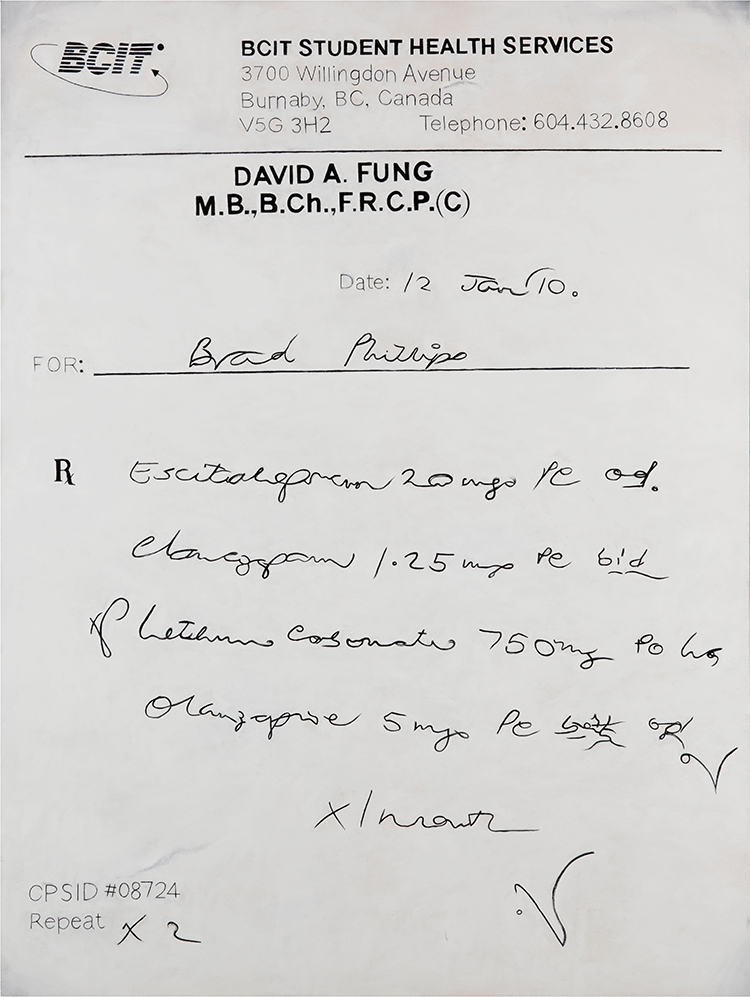 BCIT
BCIT STUDENT HEALTH SERVICES
3700 Willingdon Avenue
Burnaby, BC, Canada
V5G 3H2 Telephone: 604.432.8608
DAVID A. FUNG
M.B.,B.Ch.,F.R.C.P.(C)
Date: 12 Jan/10.
FOR: Brad Phillips
℞ Escitalopram 20 mgs PO od.
Clonazepam 1.25 mgs PO bid
Lithium Carbonate 750mg PO hs
Olanzapine 5 mgs PO od
x 1 month
CPSID #08724
Repeat x 2